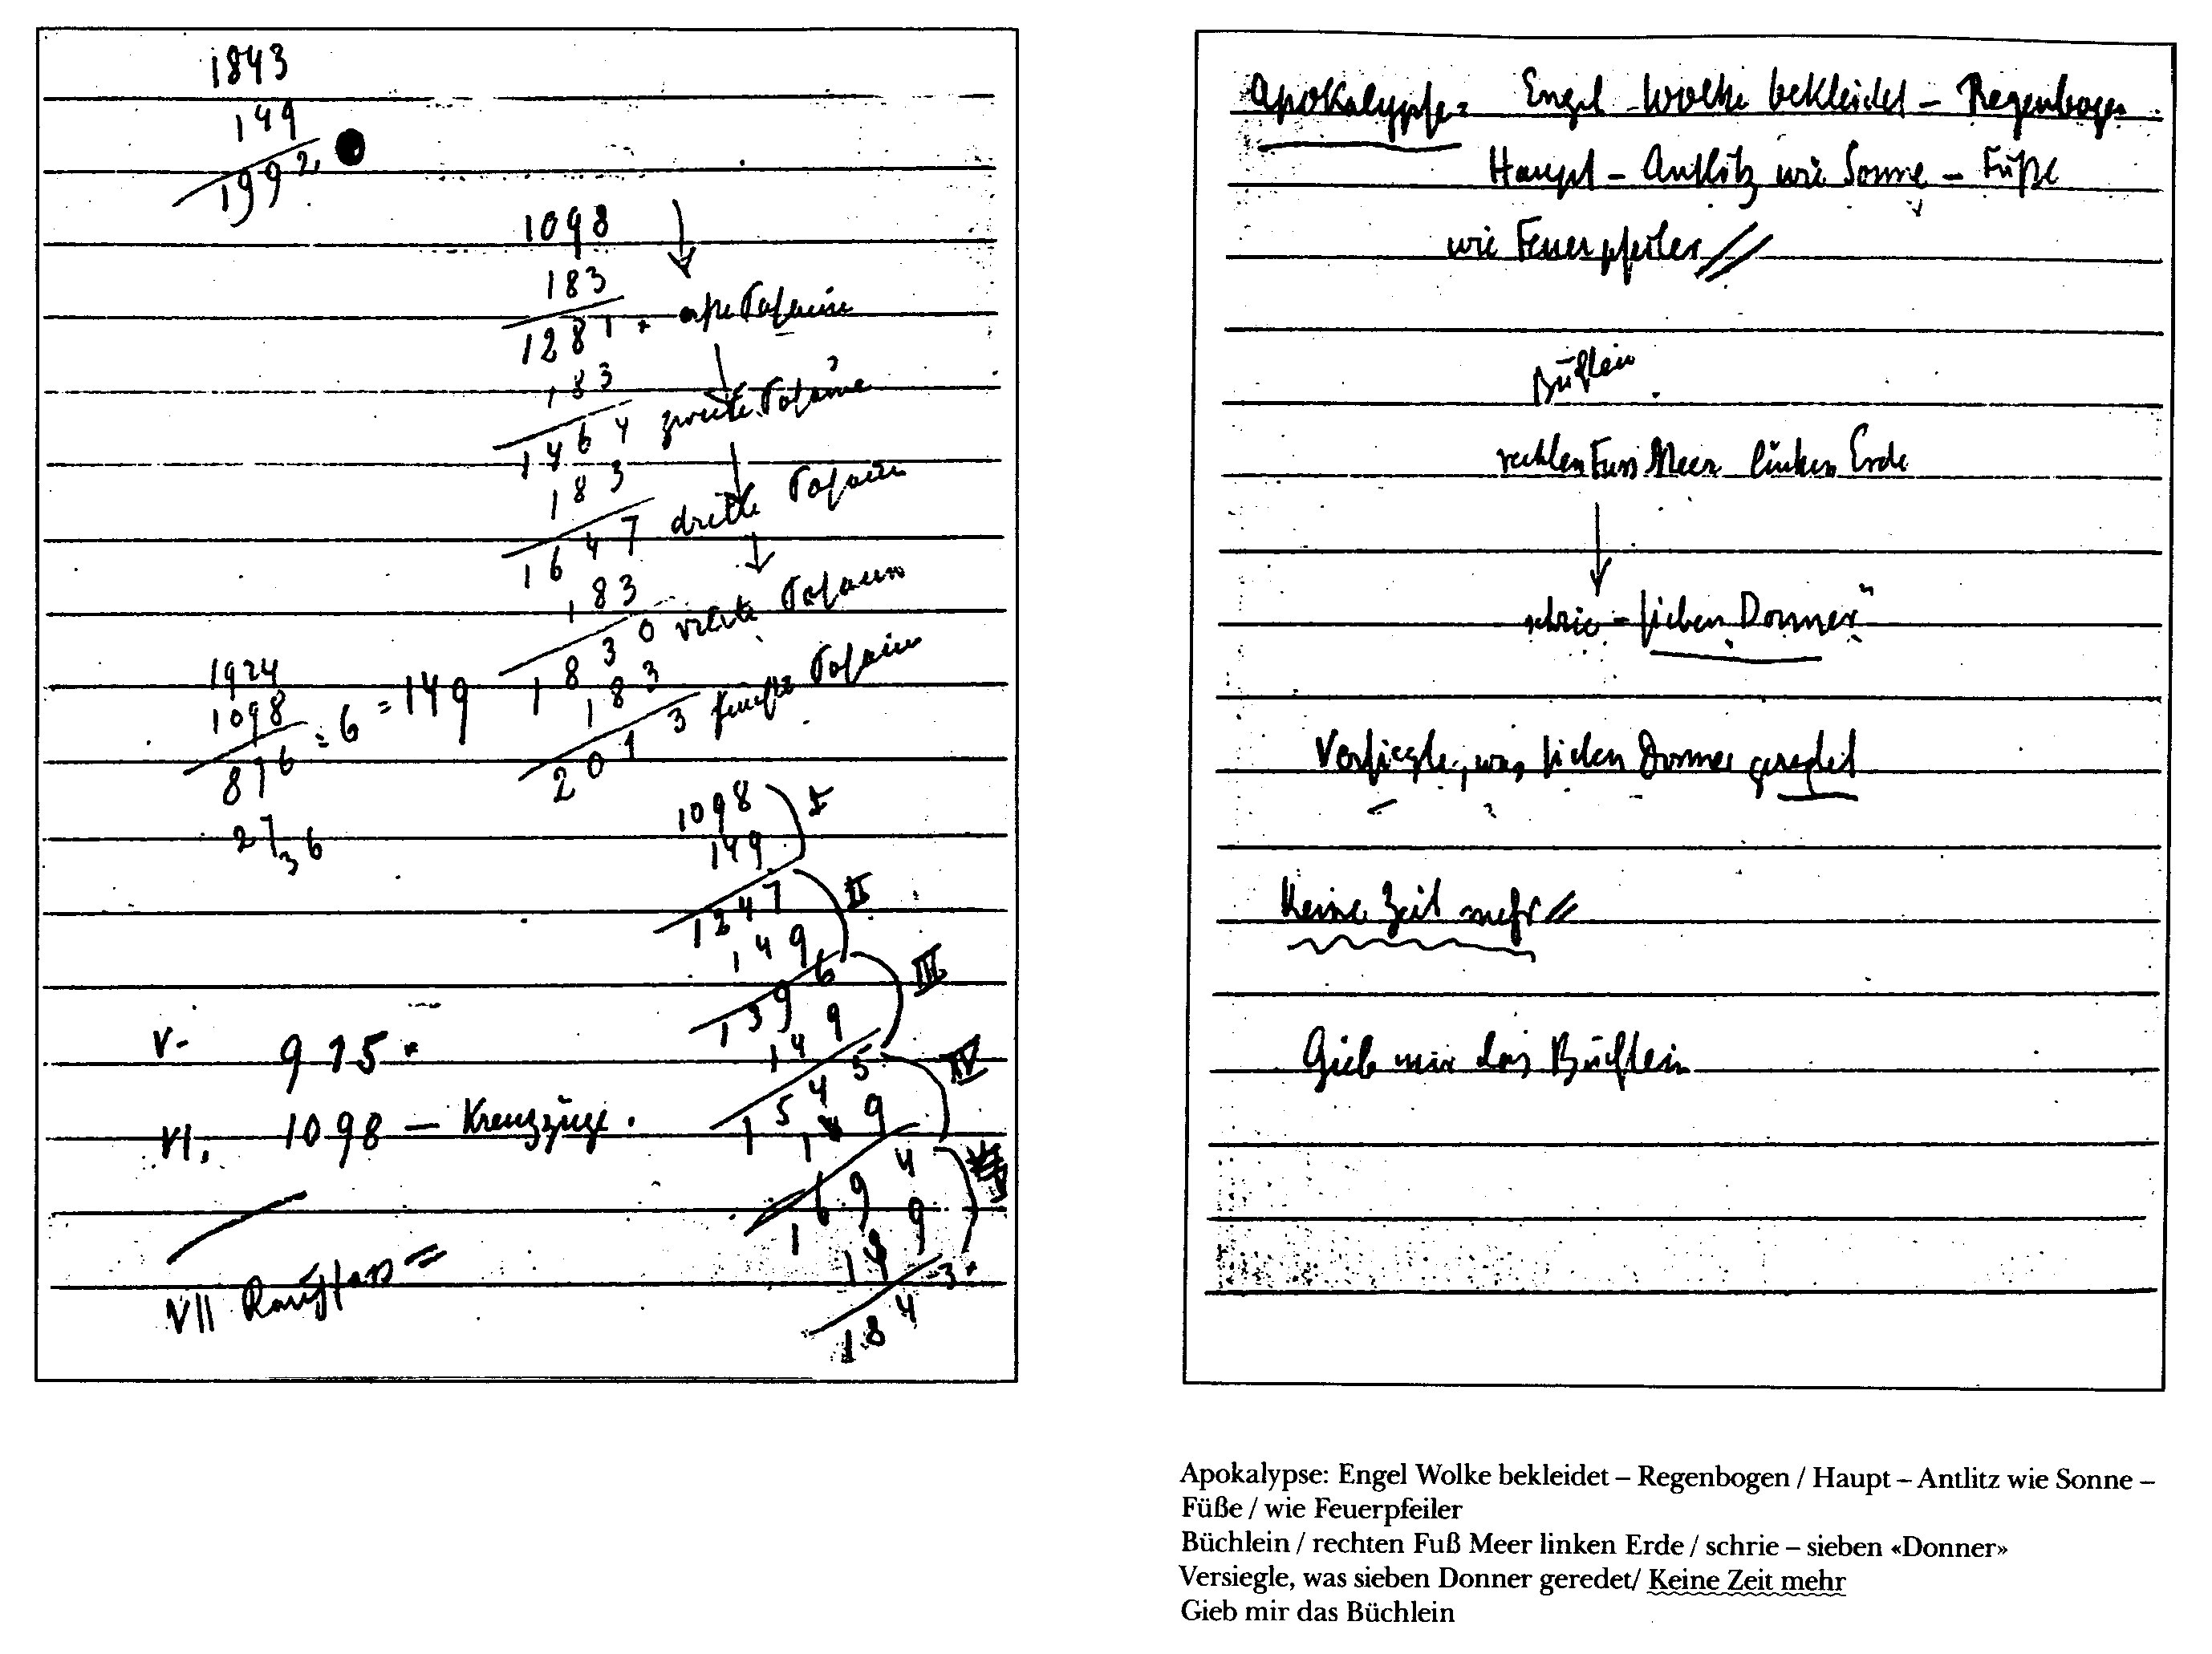 1843
149
1992
1098
183
1281 · erste Posaune
183
1464 zweite Posaune
183
1647 dritte Posaune
183
1830 vierte Posaune
183
2013 fünfte Posaune
1924
1098
876 : 6 = 149
27
36
1098 I
149
1247 II
149
1396 III
149
1545 IV
149
1694
149
1843 ·
V- 915 ·
VI. 1098 – Kreuzzüge.
VII
Apokalypse: Engel Wolke bekleidet – Regenbogen
Haupt – Antlitz wie Sonne – Füße
wie Feuerpfeiler
Büchlein
rechten Fuss Meer linken Erde
schrie – sieben Donner"
Versiegle, was sieben Donner geredet
Keine Zeit mehr
Gieb mir das Büchlein
Apokalypse: Engel Wolke bekleidet – Regenbogen / Haupt – Antlitz wie Sonne –
Füße / wie Feuerpfeiler
Büchlein / rechten Fuß Meer linken Erde / schrie – sieben «Donner»
Versiegle, was sieben Donner geredet/ Keine Zeit mehr
Gieb mir das Büchlein